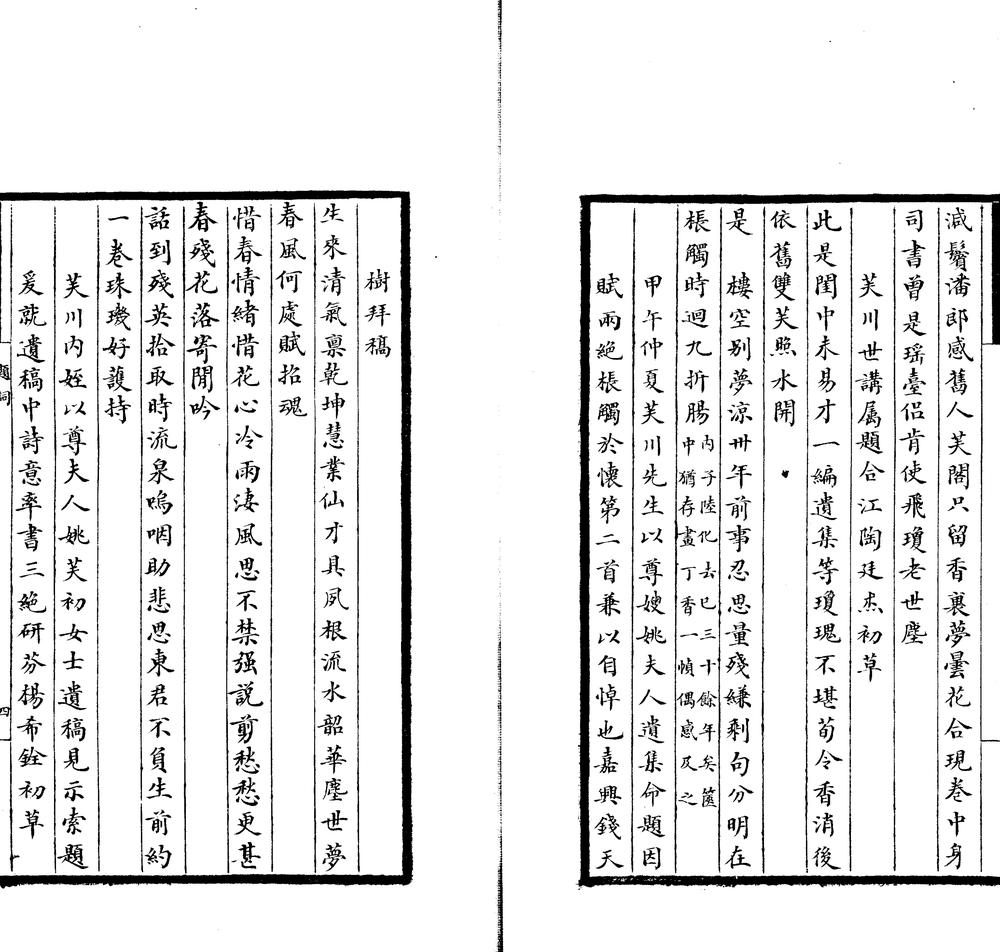 減鬢潘郎感舊人芙閣只留香裏夢曇花合現卷中身
司書曾是瑤臺侣肯使飛瓊老世塵
芙川世講属題合江陶廷杰初草
此是閨中未易才一編遺集等瓊瑰不堪荀令香消後
依舊雙芙照水開
樓空别夢涼卅年前事忍思量殘縑剩句分明在
是
棖觸時迴九折腸内子陸化去已三十餘年矣篋
中猶存畫丁香一幀偶感及之
甲午仲夏芙川先生以尊嫂姚夫人遺集命題因
賦兩絶棖觸於懷第二首兼以自悼也嘉興錢天
樹拜稿
生來清氣禀乾坤慧業仙才具夙根流水韶華塵世夢
春風何處賦招魂
惜春情緒惜花心冷雨淒風思不禁强説剪愁愁更甚
春殘花落寄閒吟
話到殘英拾取時流泉嗚咽助悲思東君不負生前約
一卷珠璣好護持
芙川内姪以尊夫人姚芙初女士遺稿見示索題
爰就遺稿中詩意率書三絶研芬楊希銓初草
題詞
四